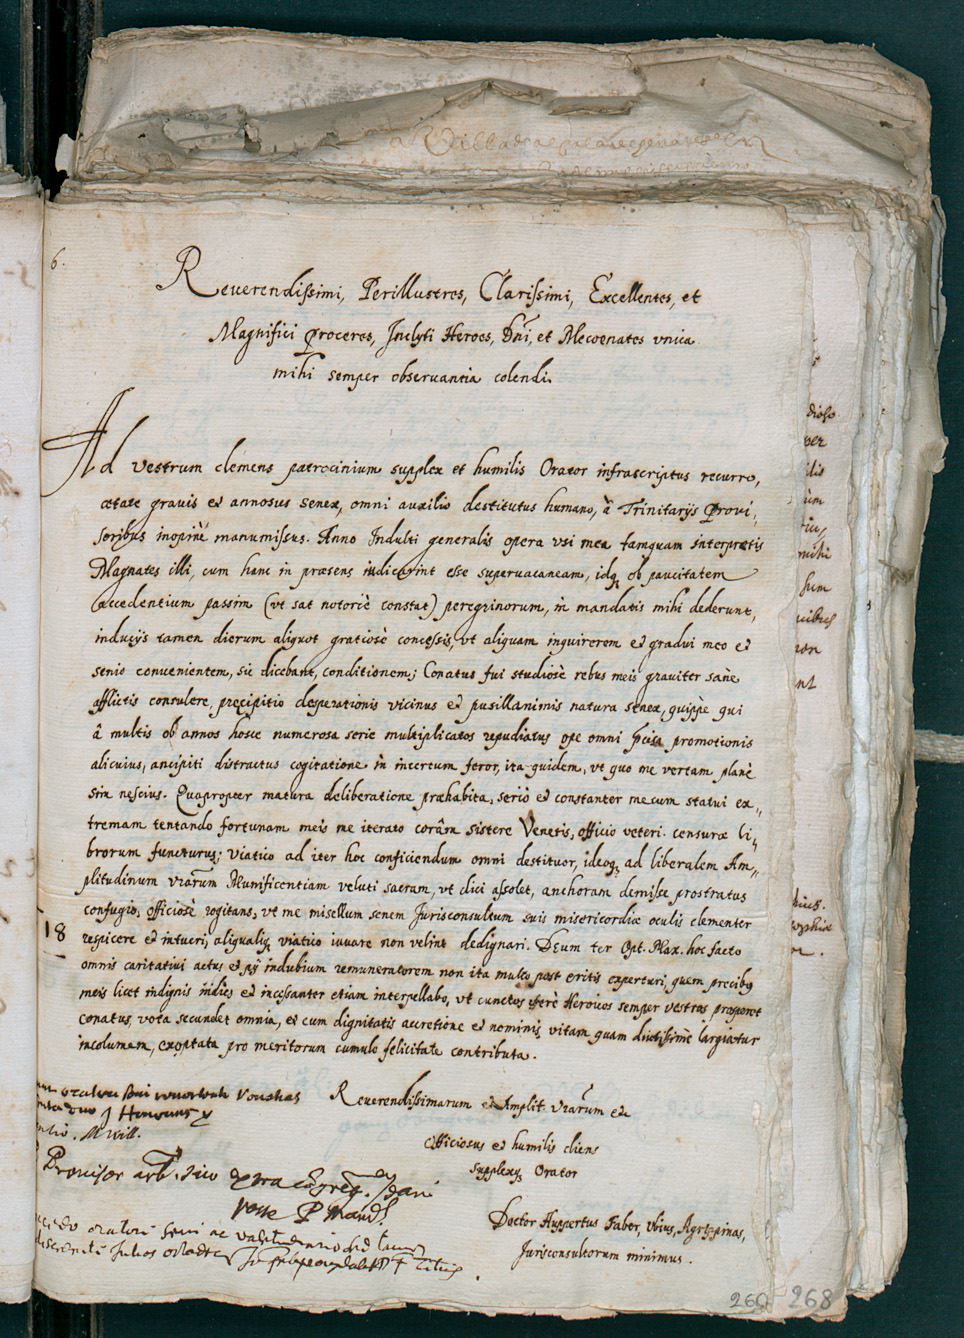 6.
Reuerendissimi, Perillustres, Clarissimi, Excellentes, et
Magnifici Proceres, Inclyti Heroes, Dñi, et Mecoenates vnica
mihi semper obseruantia colendi.
Ad vestrum clemens patrocinium supplex et humilis Orator infrascriptus recurro,
ætate grauis et annosus senex, omni auxilio destitutus humano, à Trinitarijs Proui,
soribus inopinè manumissus. Anno Indulti generalis opera vsi mea tamquam interprætis
Magnates illi, cum hanc in præsens iudicarint esse superuacaneam, idq; ob paucitatem
accedentium passim (vt sat notoriè constat) peregrinorum, in mandatis mihi dederunt,
inducijs tamen dierum aliquot gratiosè concessis, vt aliquam inquirerem et gradui meo et
senio conuenientem, sic dicebant, conditionem; Conatus fui studiosè rebus meis grauiter sanè
afflictis consulere, præcipitio desperationis vicinus et pusillanimis natura senex, quippè qui
à multis ob annos hosce numerosa serie multiplicatos repudiatus ope omni promotionis
alicuius, ancipiti distractus cogitatione in incertum feror, ita quidem, vt quo me vertam planè
sim nescius. Quapropter matura deliberatione præhabita, seriò et constanter mecum statui ex,,
tremam tentando fortunam meis me iterato coràm sistere Venetis, officio veteri censuræ li,,
brorum functurus; viatico ad iter hoc conficiendum omni destituor, ideoq; ad liberalem Am,,
plitudinum vrarum Munificentiam veluti sacram, vt dici assolet, anchoram demisse prostratus
confugio, officiosè rogitans, vt me misellum senem Jurisconsultum suis misericordiæ oculis clementer
18
respicere et intueri, aliqualiq; viatico iuuare non velint dedignari. DEum ter Opt. Max. hoc facto
omnis caritatiui actus et pij indubium remuneratorem non ita multo post eritis experturi, quem precibus
meis licet indignis indies et incessanter etiam interpellabo, vt cunctos ferè Heroicos semper vestros prosperet
conatus, vota secundet omnia, et cum dignitatis accretione et nominis vitam quam diutissimè largiatur
incolumem, exoptata pro meritorum cumulo felicitate contributa.
Reuerendissimarum et Amplit. Vrarum etc
Officiosus et humilis cliens
supplexq; Orator
Doctor Huppertus Faber, vbius, Agrippinas,
Jurisconsultorum minimus.
Prouisor arb. suo extra Congreg. dari
posse P. Mand.
oratori seni ac valetudinario
Julios
260
268